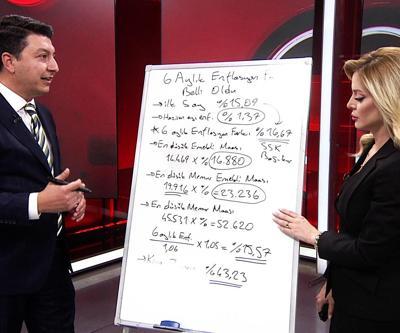 6 Aylık Enflasyon
Belli Oldu
→ İlk 5 ay %15,09
→ Haziran ayı enf. %1.37
* 6 aylık Enflasyon Farkı: %16,67
SSK
Bağ-kur
→ En düşük Emekli Maaşı
14.469 x % 16.880
→ En düşük Memur Emekli Maaşı
19.916 x % = 23.236
→ En düşük Memur Maaşı
45531 x % = 52.620
6 aylık Enf.
1,06 x 1.05 = %15,57
%63,23